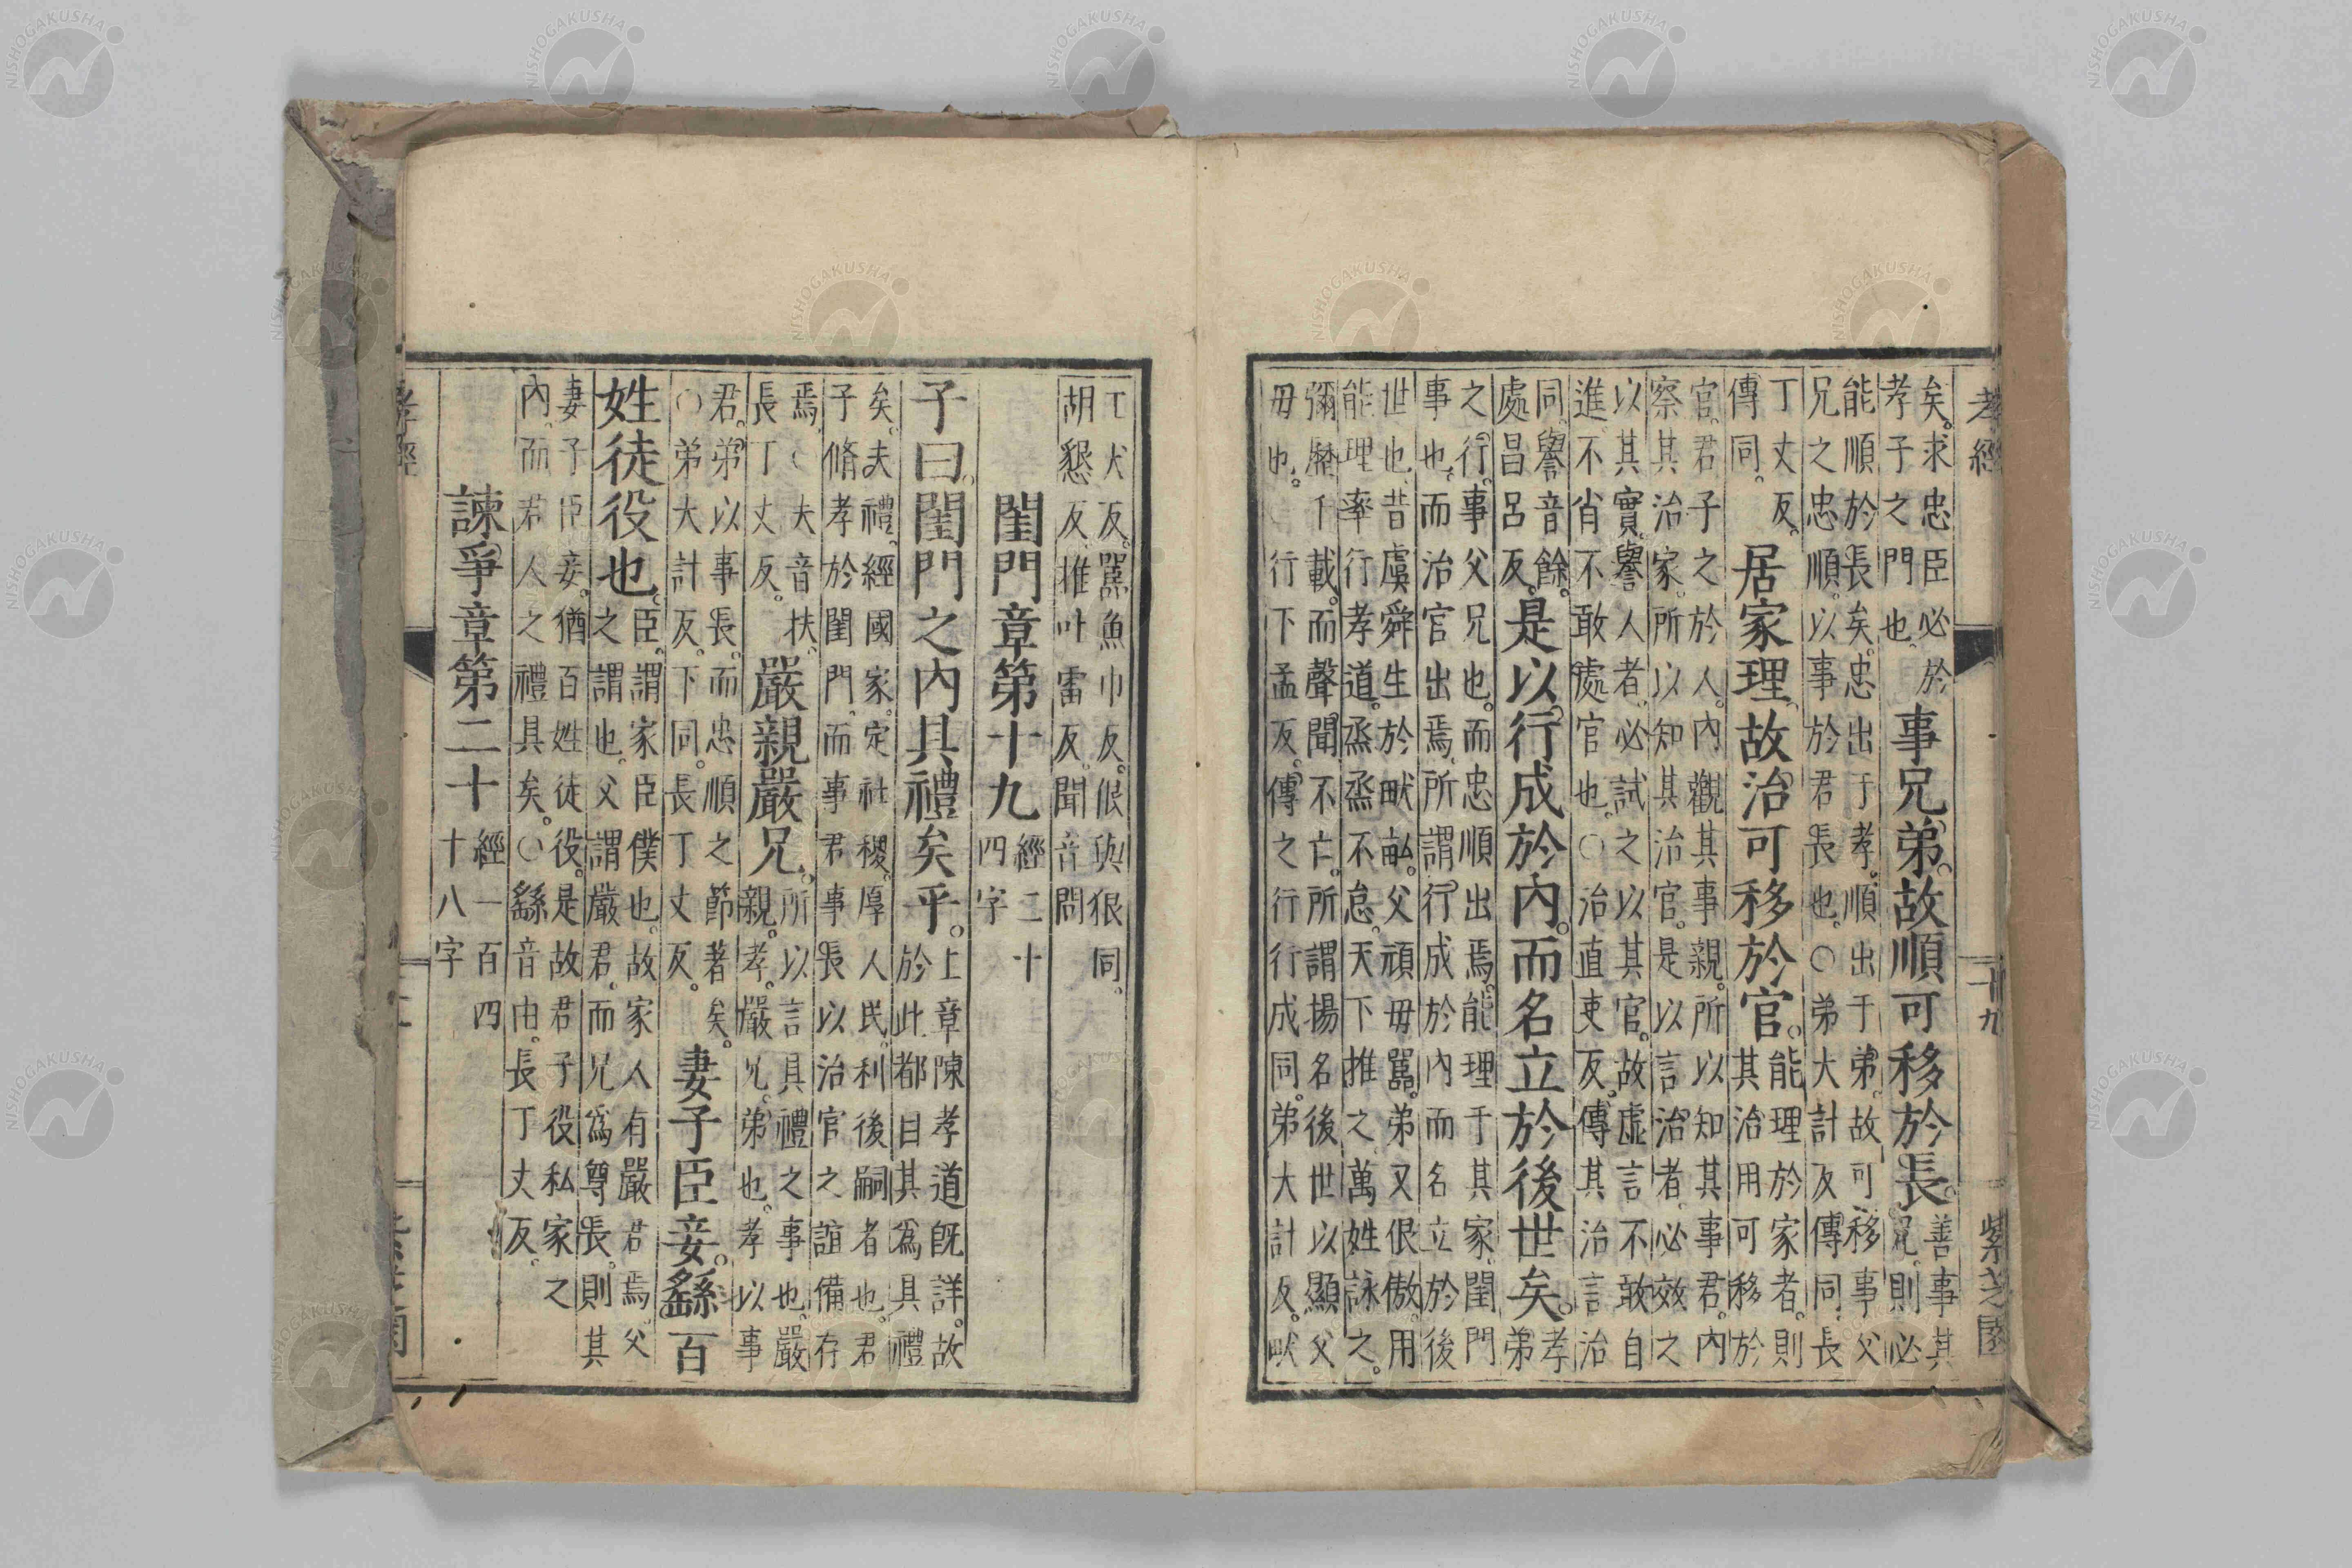 孝經 十九 紫芝園
矣。求忠臣必於
孝子之門也。
事兄弟。故順可移於長。
善事其
兄。則必
能順於長矣。忠出于孝。順出于弟。故可移事父
兄之忠順。以事於君長也。○弟大計反。傳同。長
丁丈反。
傳同。
居家理。故治可移於官。
能理於家者。則
其治用可移於
官。君子之於人。內觀其事親。所以知其事君。內
察其治家。所以知其治官。是以言治者。必效之
以其實。譽人者。必試之以其官。故虛言不敢自
進。不肖不敢處官也。○治直吏反。傳其治言治
同。譽音餘。
處昌呂反。
是以。行成於內。而名立於後世矣。
孝
弟
之行。事父兄也。而忠順出焉。能理于其家。閨門
事也。而治官出焉。所謂行成於內而名立於後
世也。昔虞舜生於畎畝。父頑毋嚚。弟又佷傲。用
能理率行孝道。烝烝不怠。天下推之。萬姓詠之。
彌歷千載。而聲聞不亡。所謂揚名後世以顯父
毋也。○行下孟反。傳之行行成同。弟大計反。畎
工犬反。嚚魚巾反。佷與狠同。
胡懇反。推吐雷反。聞音問
閨門章第十九
經二十
四字
子曰。閨門之內具禮矣乎。
上章陳孝道旣詳。故
於此都目其爲具禮
矣。夫禮。經國家。定社稷。厚人民。利後嗣者也。君
子脩孝於閨門。而事君事長以治官之誼備存
焉。○夫音扶。
長丁丈反。
嚴親嚴兄。
所以言具禮之事也。嚴
親。孝。嚴兄。弟也。孝以事
君。弟以事長。而忠順之節著矣。
○弟大計反。下同。長丁丈反。
妻子臣妾。繇百
姓徒役也。
臣。謂家臣僕也。故家人有嚴君焉。父
之謂也。父謂嚴君。而兄爲尊長。則其
妻子臣妾。猶百姓徒役。是故君子役私家之
內。而君人之禮具矣。○繇音由。長丁丈反。
諫爭章第二十
經一百四
十八字
孝經